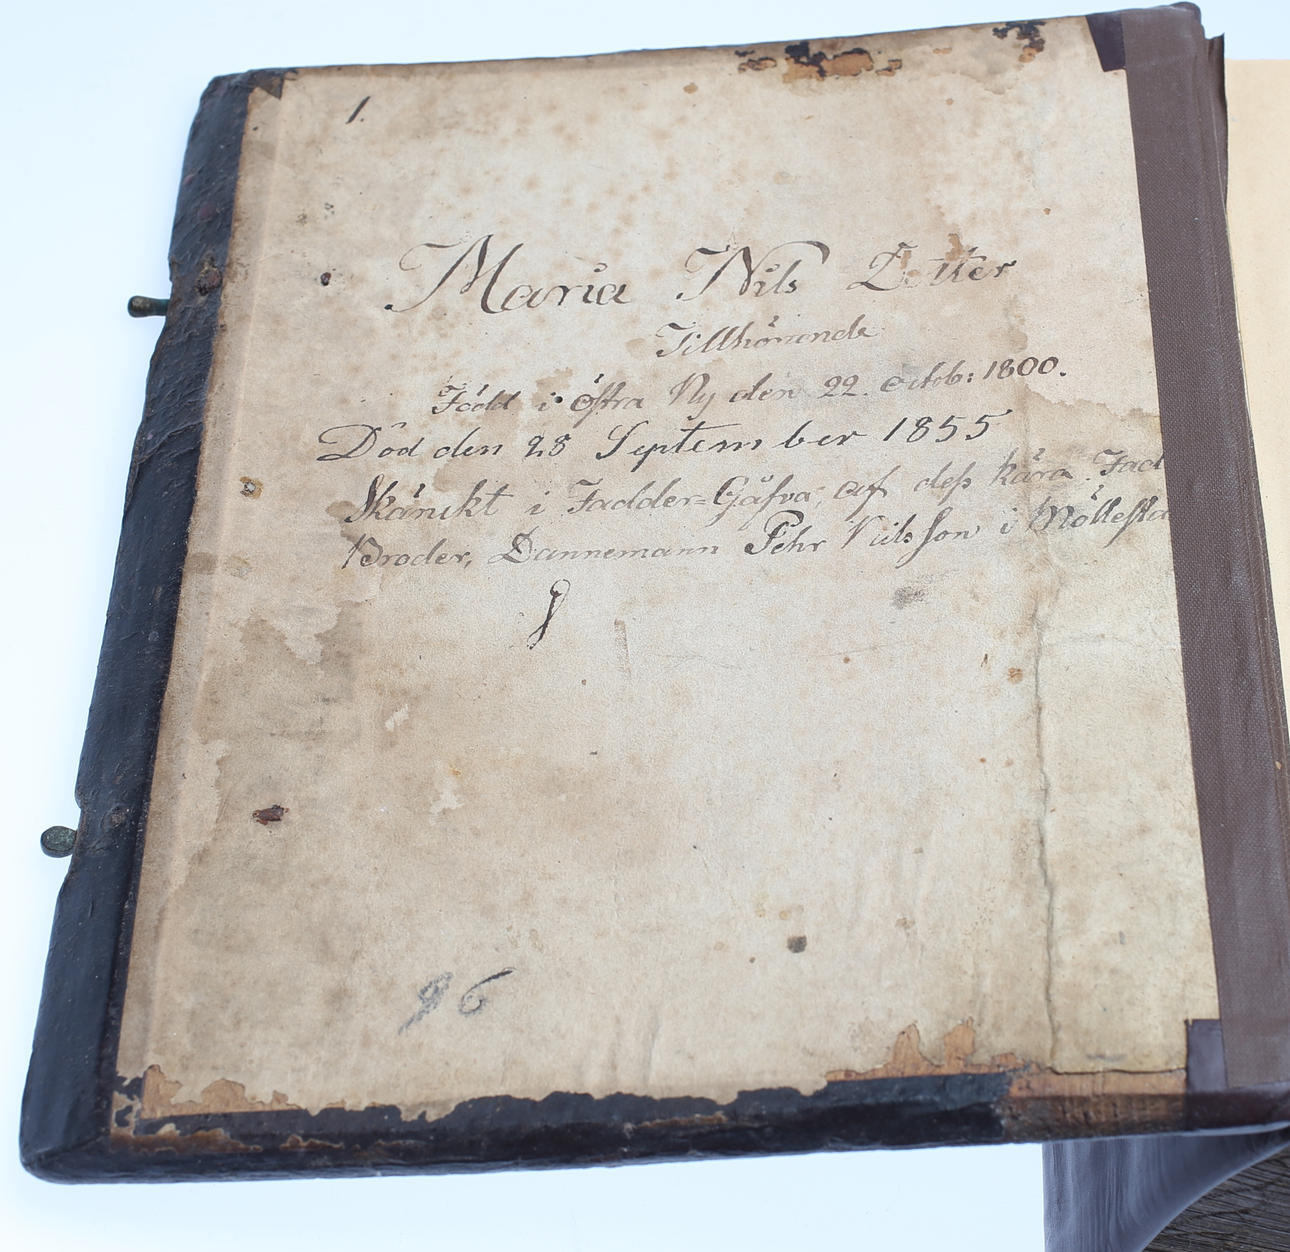 1.
Maria Nils Dotter
Tillhörande
Född i östra Ny den 22. octob: 1800.
Död den 28 September 1855
Skänckt i Fadder=Gåfva, af dess kära Fad
Broder, Dannemann Pehr Nilsson i
96